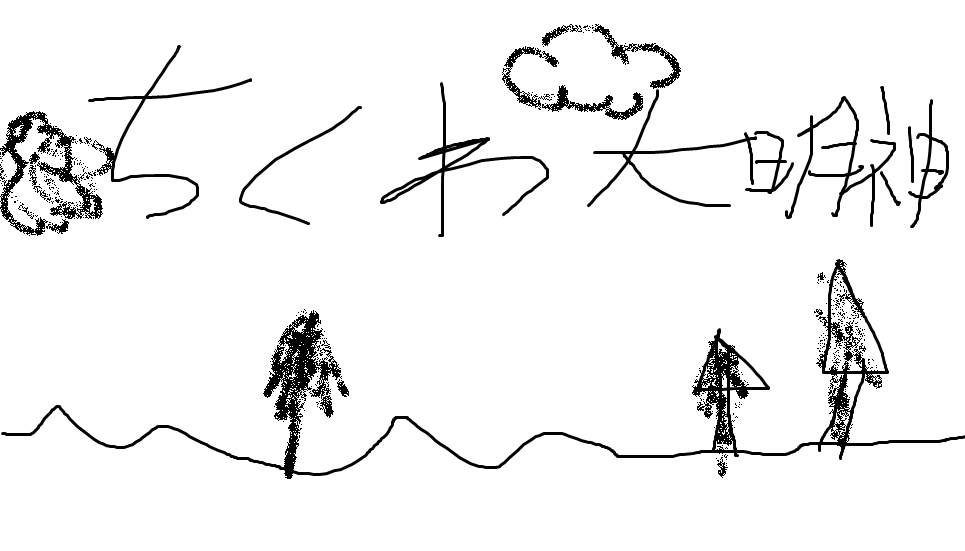 ちくわ大明神